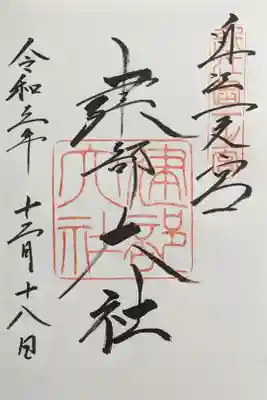 近江一之宮
建部大社
令和三年 十二月 十八日
建部大社